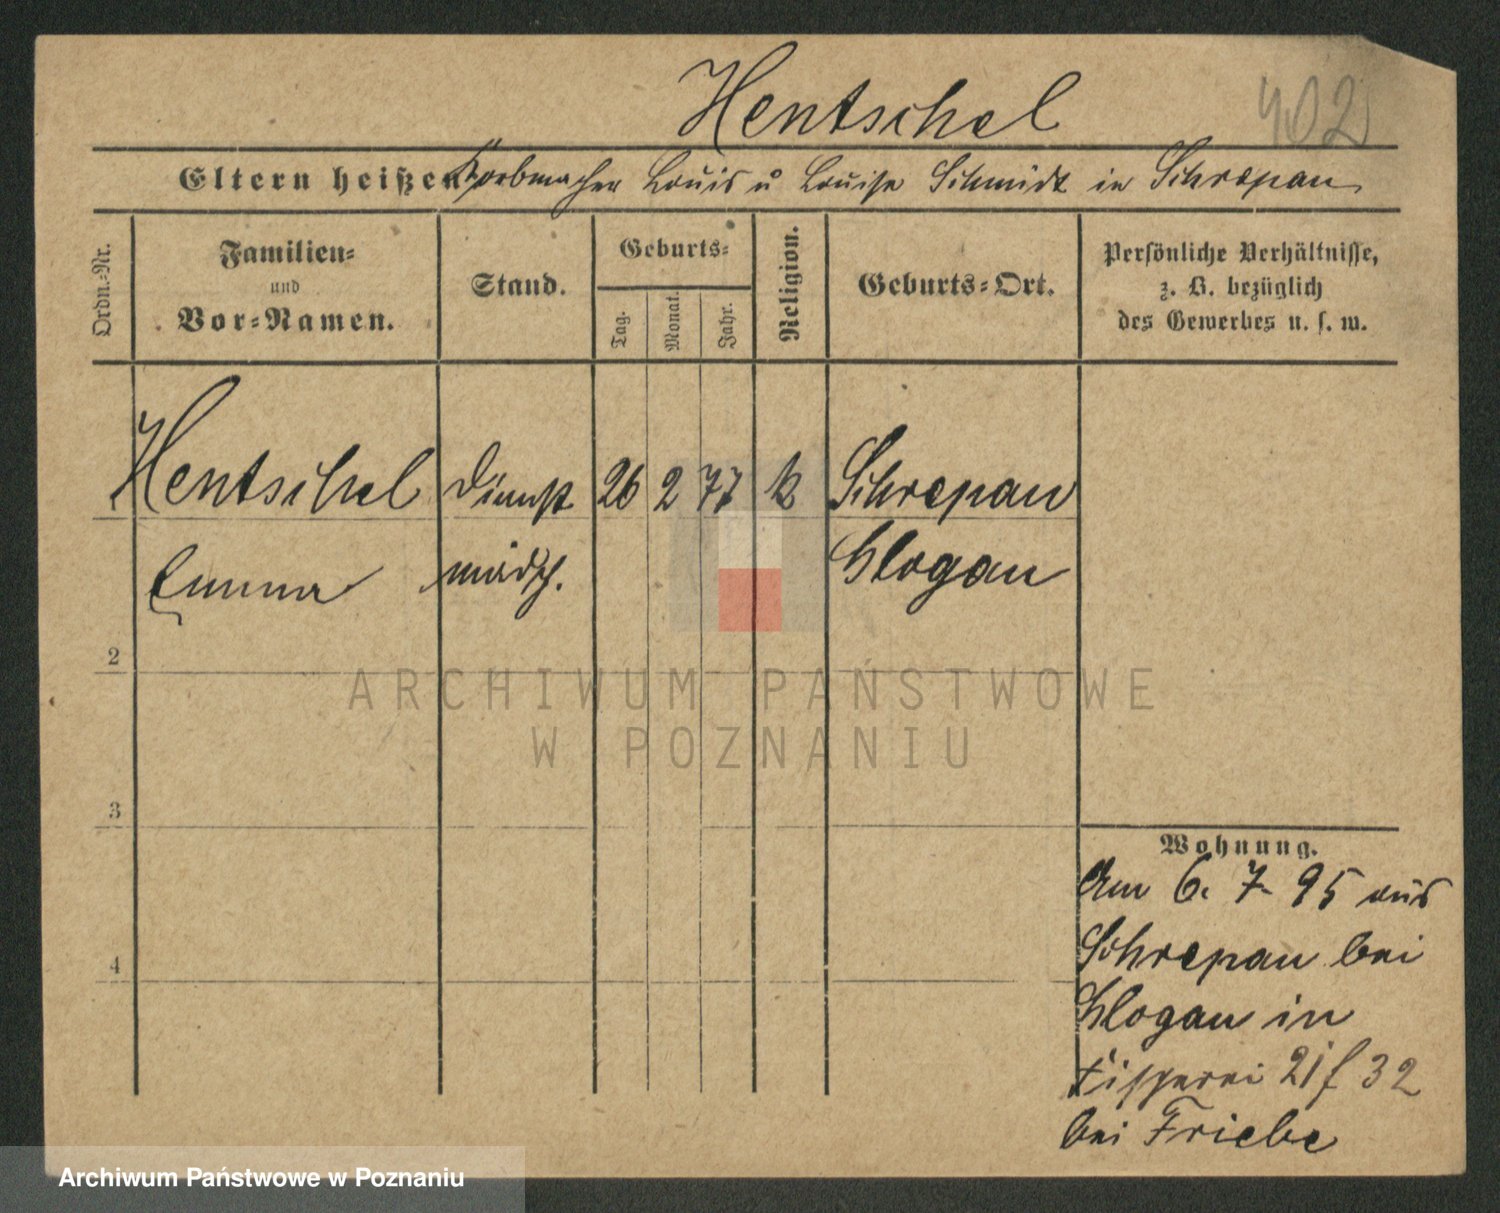 Hentschel
402
Eltern heißen Korbmacher Louis u Louise Schmidt in Schrepau
Ordn.-Nr.
Familien-
und
Vor-Namen.
Stand.
Geburts-
Tag.
Monat.
Jahr.
Religion.
Geburts-Ort.
Persönliche Verhältnisse,
z. B. bezüglich
des Gewerbes u. s. w.
Hentschel Dienst 26 2 77 k Schrepau
Emma mädch. Glogau
2
3
4
ARCHIWUM PAŃSTWOWE
W POZNANIU
Wohnung.
Am 6. 7. 95 aus
Schrepau bei
Glogau in
Fischerei 32
bei Friebe
Archiwum Państwowe w Poznaniu